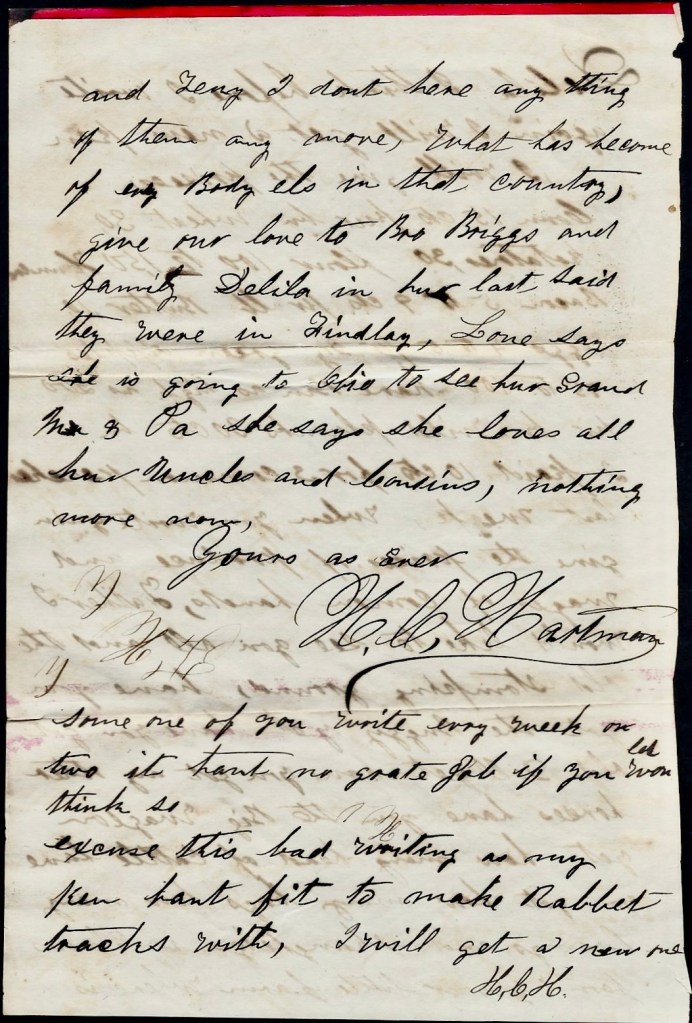 and Zeny I dont here any thing
of them any more, what has become
of evry Body els in that country,
give our love to Bro Briggs and
family Delila in hur last said
they were in Findlay, Love says
she is going to Ohio to see hur Grand
Ma & Pa she says she loves all
hur Uncles and Cousins, nothing
more now,
Yours as Ever
H. C. Hartman
some one of you write evry week or
two it hant no grate Job if you
think so
excuse this bad writing as my
pen hant fit to make Rabbet
tracks with, I will get a new one
H. C. H.